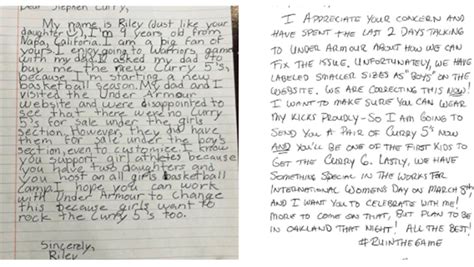 Dear Stephen Curry,
My name is Riley (Just like your
daughter), I'm 9 years old from
Napa, California. I am a big fan of
yours. I enjoy going to Warriors games
with my dad. I asked my dad to
buy me the new Curry 5's,
because I'm starting a new
basketball season. My dad and I
visited the Under Armour
website and were disappointed to
see that there were no Curry
5's for sale under the girls
section. However, they did have
them for sale under the boy's
section, even to customize. I know
you support girl athletes because
you have two daughters and
you host an all girls basketball
camp. I hope you can work
with Under Armour to change
this because girls want to
rock the Curry 5's too.
Sincerely,
Riley
I APPRECIATE YOUR CONCERN AND
HAVE SPENT THE LAST 2 DAYS TALKING
TO UNDER ARMOUR ABOUT HOW WE CAN
FIX THE ISSUE. UNFORTUNATELY, WE HAVE
LABELED SMALLER SIZES AS "BOYS" ON THE
WEBSITE. WE ARE CORRECTING THIS NOW!
I WANT TO MAKE SURE YOU CAN WEAR
MY KICKS PROUDLY - SO I AM GOING TO
SEND YOU A PAIR OF CURRY 5'S NOW
AND YOU'LL BE ONE OF THE FIRST KIDS TO
GET THE CURRY 6. LASTLY, WE HAVE
SOMETHING SPECIAL IN THE WORKS FOR
INTERNATIONAL WOMENS DAY ON MARCH 8TH,
AND I WANT YOU TO CELEBRATE WITH ME!
MORE TO COME ON THAT, BUT PLAN TO BE
IN OAKLAND THAT NIGHT! ALL THE BEST!
#RUINTHEGAME